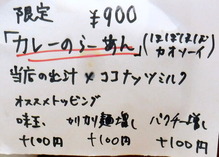 限定 ¥900
「カレーのらーめん」(ほぼほぼ カオソーイ)
当店の出汁×ココナッツミルク
オススメトッピング
味玉、 カリカリ麺増し パクチー増し
+100円 +100円 +100円